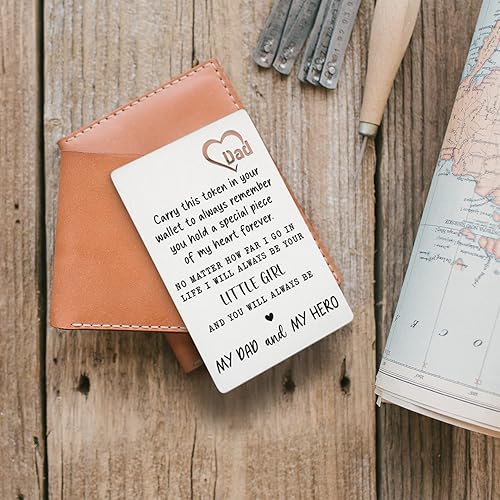 Dad
Carry this token in your
wallet to always remember
you hold a special piece
of my heart forever.
NO MATTER HOW FAR I GO IN
LIFE I WILL ALWAYS BE YOUR
LITTLE GIRL
AND YOU WILL ALWAYS BE
MY DAD and MY HERO